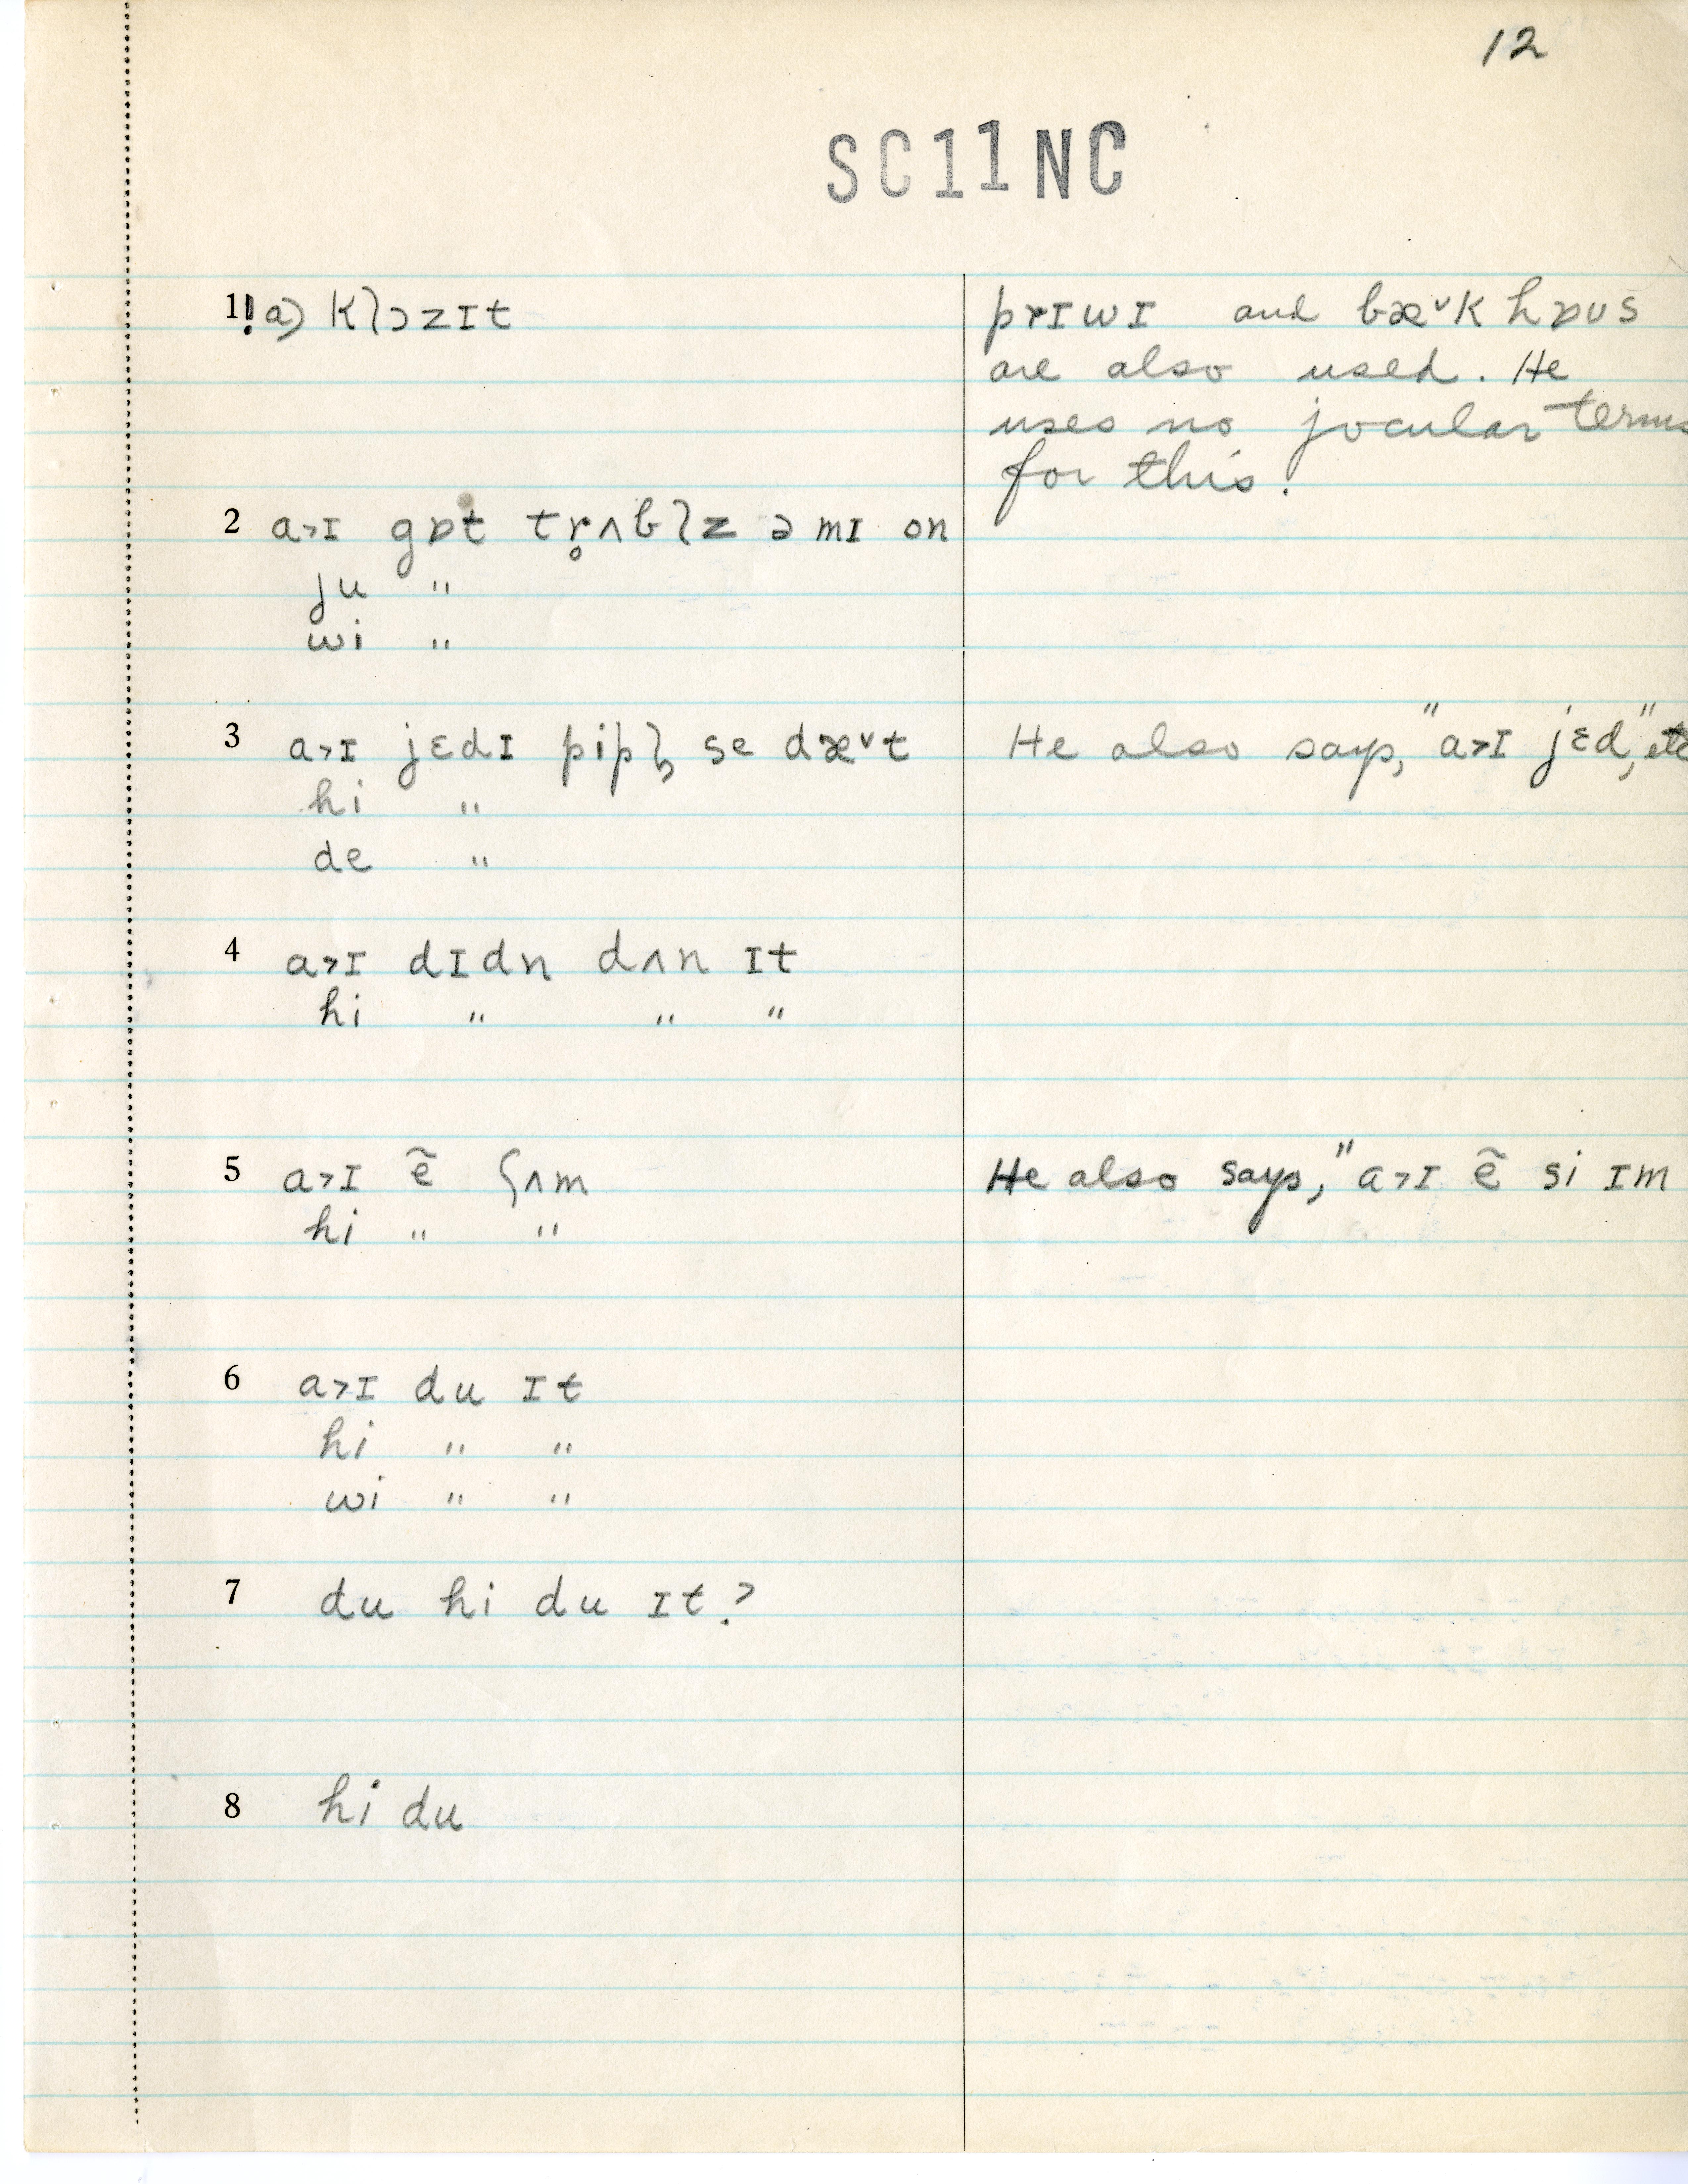 12
SC11NC
1!a) klɔzɪt
prɪwɪ and bæ˅k hɒʊs
are also used. He
uses no jocular terms
for this.
2 a˃ɪ gɒt tr̥ʌblz ə mɪ on
ju "
wi "
3 a˃ɪ jɛdɪ pipl̩ se dæ˅t
He also says, "a˃ɪ jɛd," etc
hi "
de "
4 a˃ɪ dɪdn dʌn ɪt
hi " " "
5 a˃ɪ ẽ ʃʌm
He also says, "a˃ɪ ẽ si ɪm
hi " "
6 a˃ɪ du ɪt
hi " "
wi " "
7 du hi du ɪt?
8 hi du